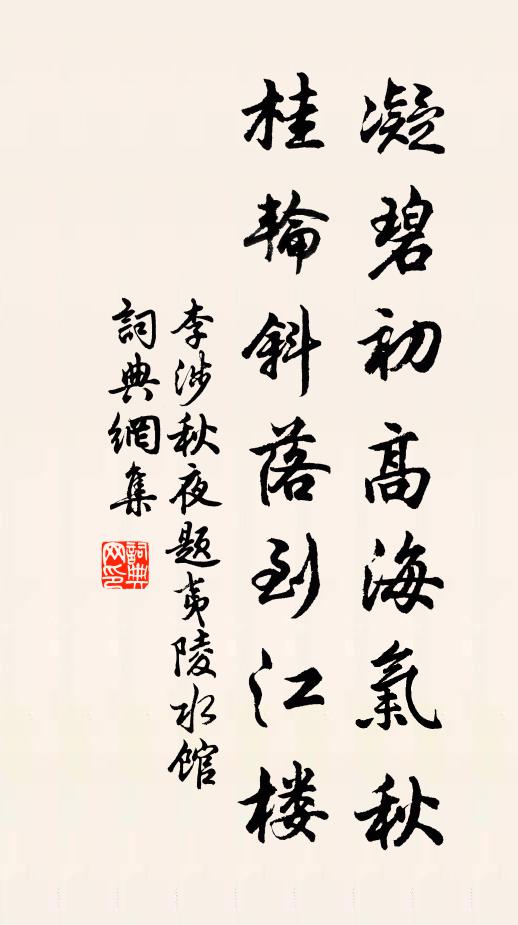 凝碧初高海氣秋
桂輪斜落到江楼
李涉秋夜题夷陵水馆
詞典網集
詞典网印